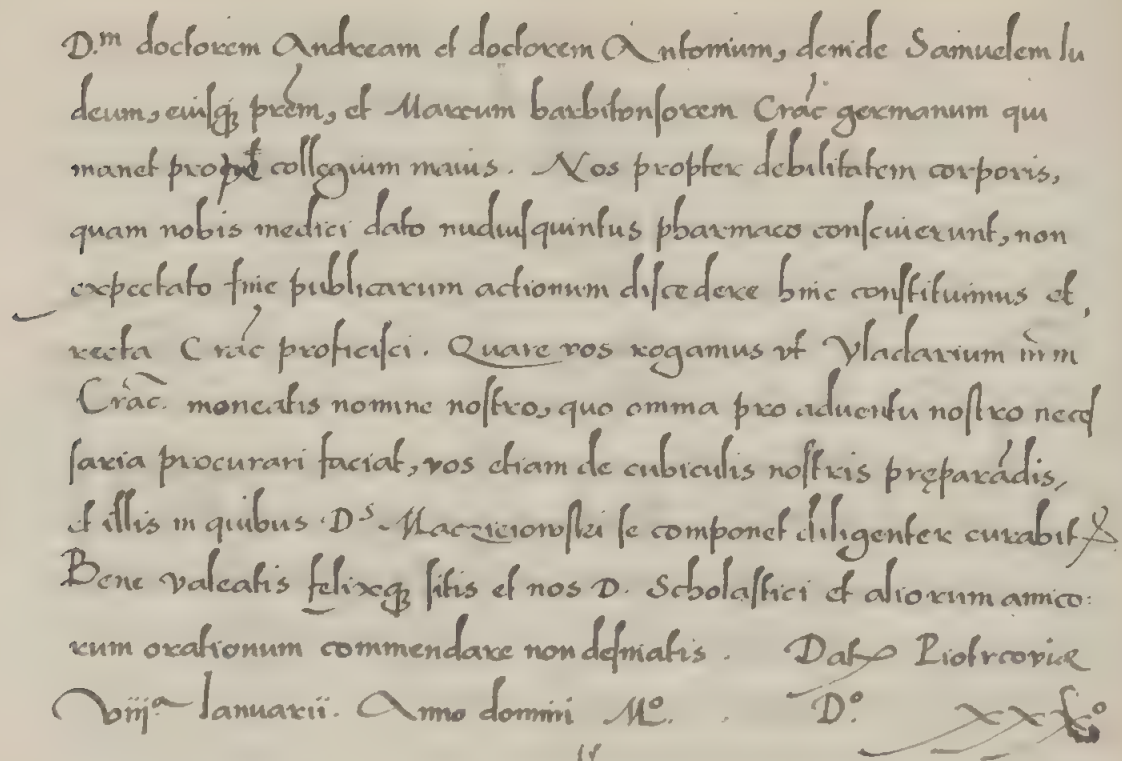 D.m doctorem Andream et doctorem Antonium, deinde Samuelem Iu
deum, eiusq; prem, et Marcum barbitonsorem Crac germanum qui
manet collegium maius. Nos propter debilitatem corporis,
quam nobis medici dato nudiusquintus pharmaco consciuierunt, non
expectato fine publicarum actionum discedere hinc constituimus et,
recta Crac proficisci. Quare vos rogamus vt Vladarium nrm
Crac. moneatis nomine nostro, quo omnia pro aduentu nostro neces
saria procurari faciat, vos etiam de cubiculis nostris pręparādis,
et illis in quibus Ds Maczieiowski se componet diligenter curabit
Bene valeatis felixq; sitis et nos D. Scholastici et aliorum amico:
rum orationum commendare non desinatis. Dat Piotrcovię
Viiija Ianuarii. Anno domini Mo. Do. xxxo